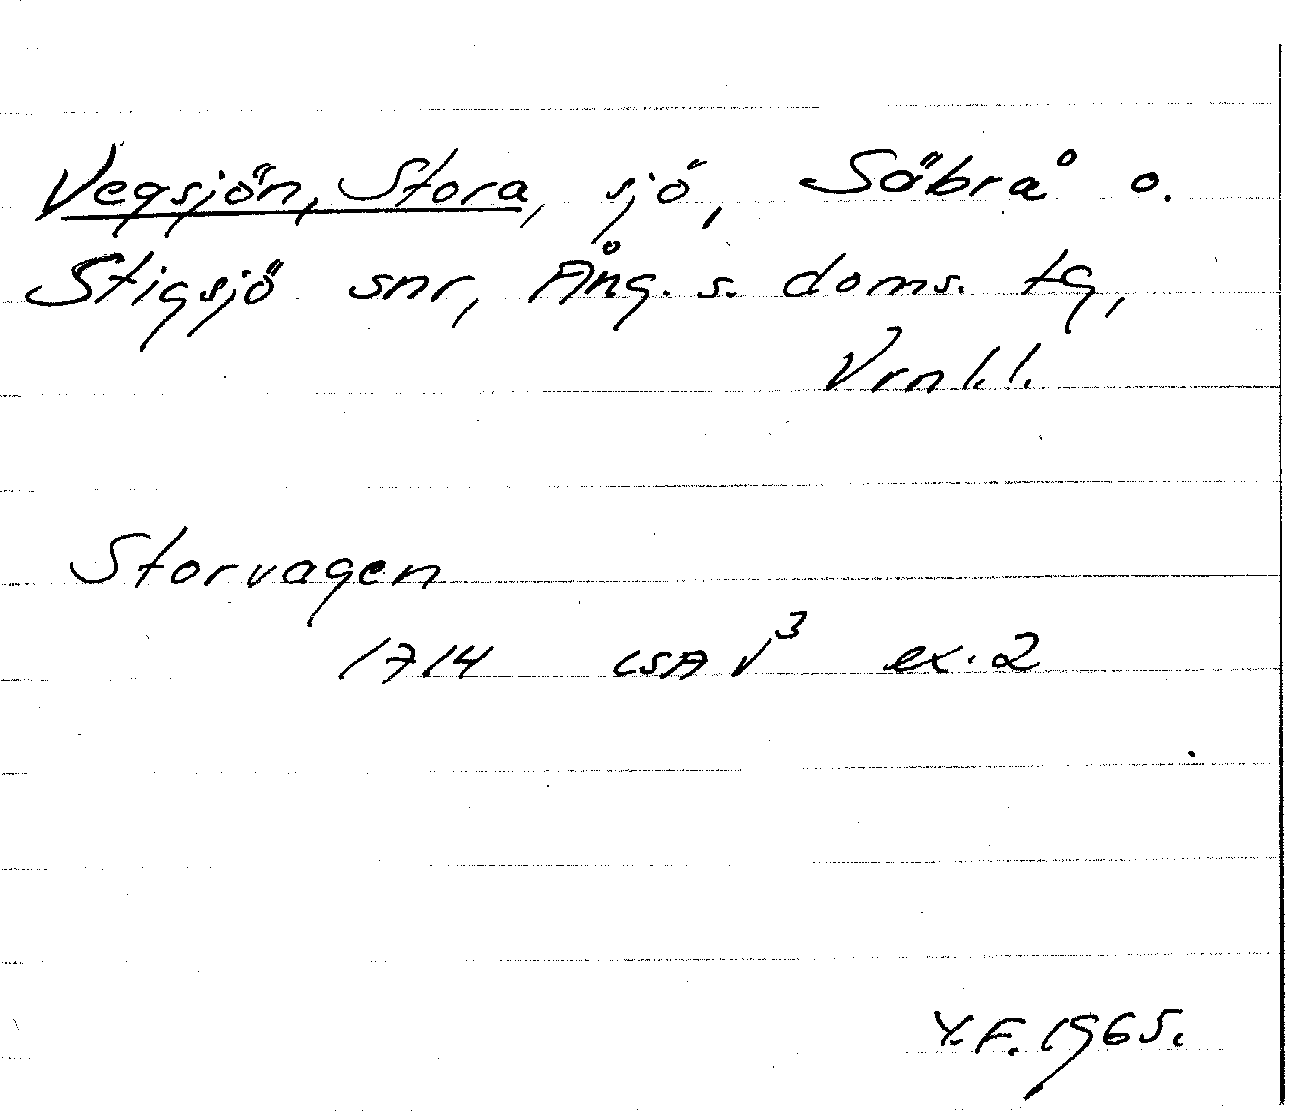 Vegsjön, Stora, sjö, Säbrå o.
Stigsjö snr, Ång. s. doms. tg,
Vrnl.l.
Storvagen
1714 LSA V³ ex. 2
Y.F. 1965.